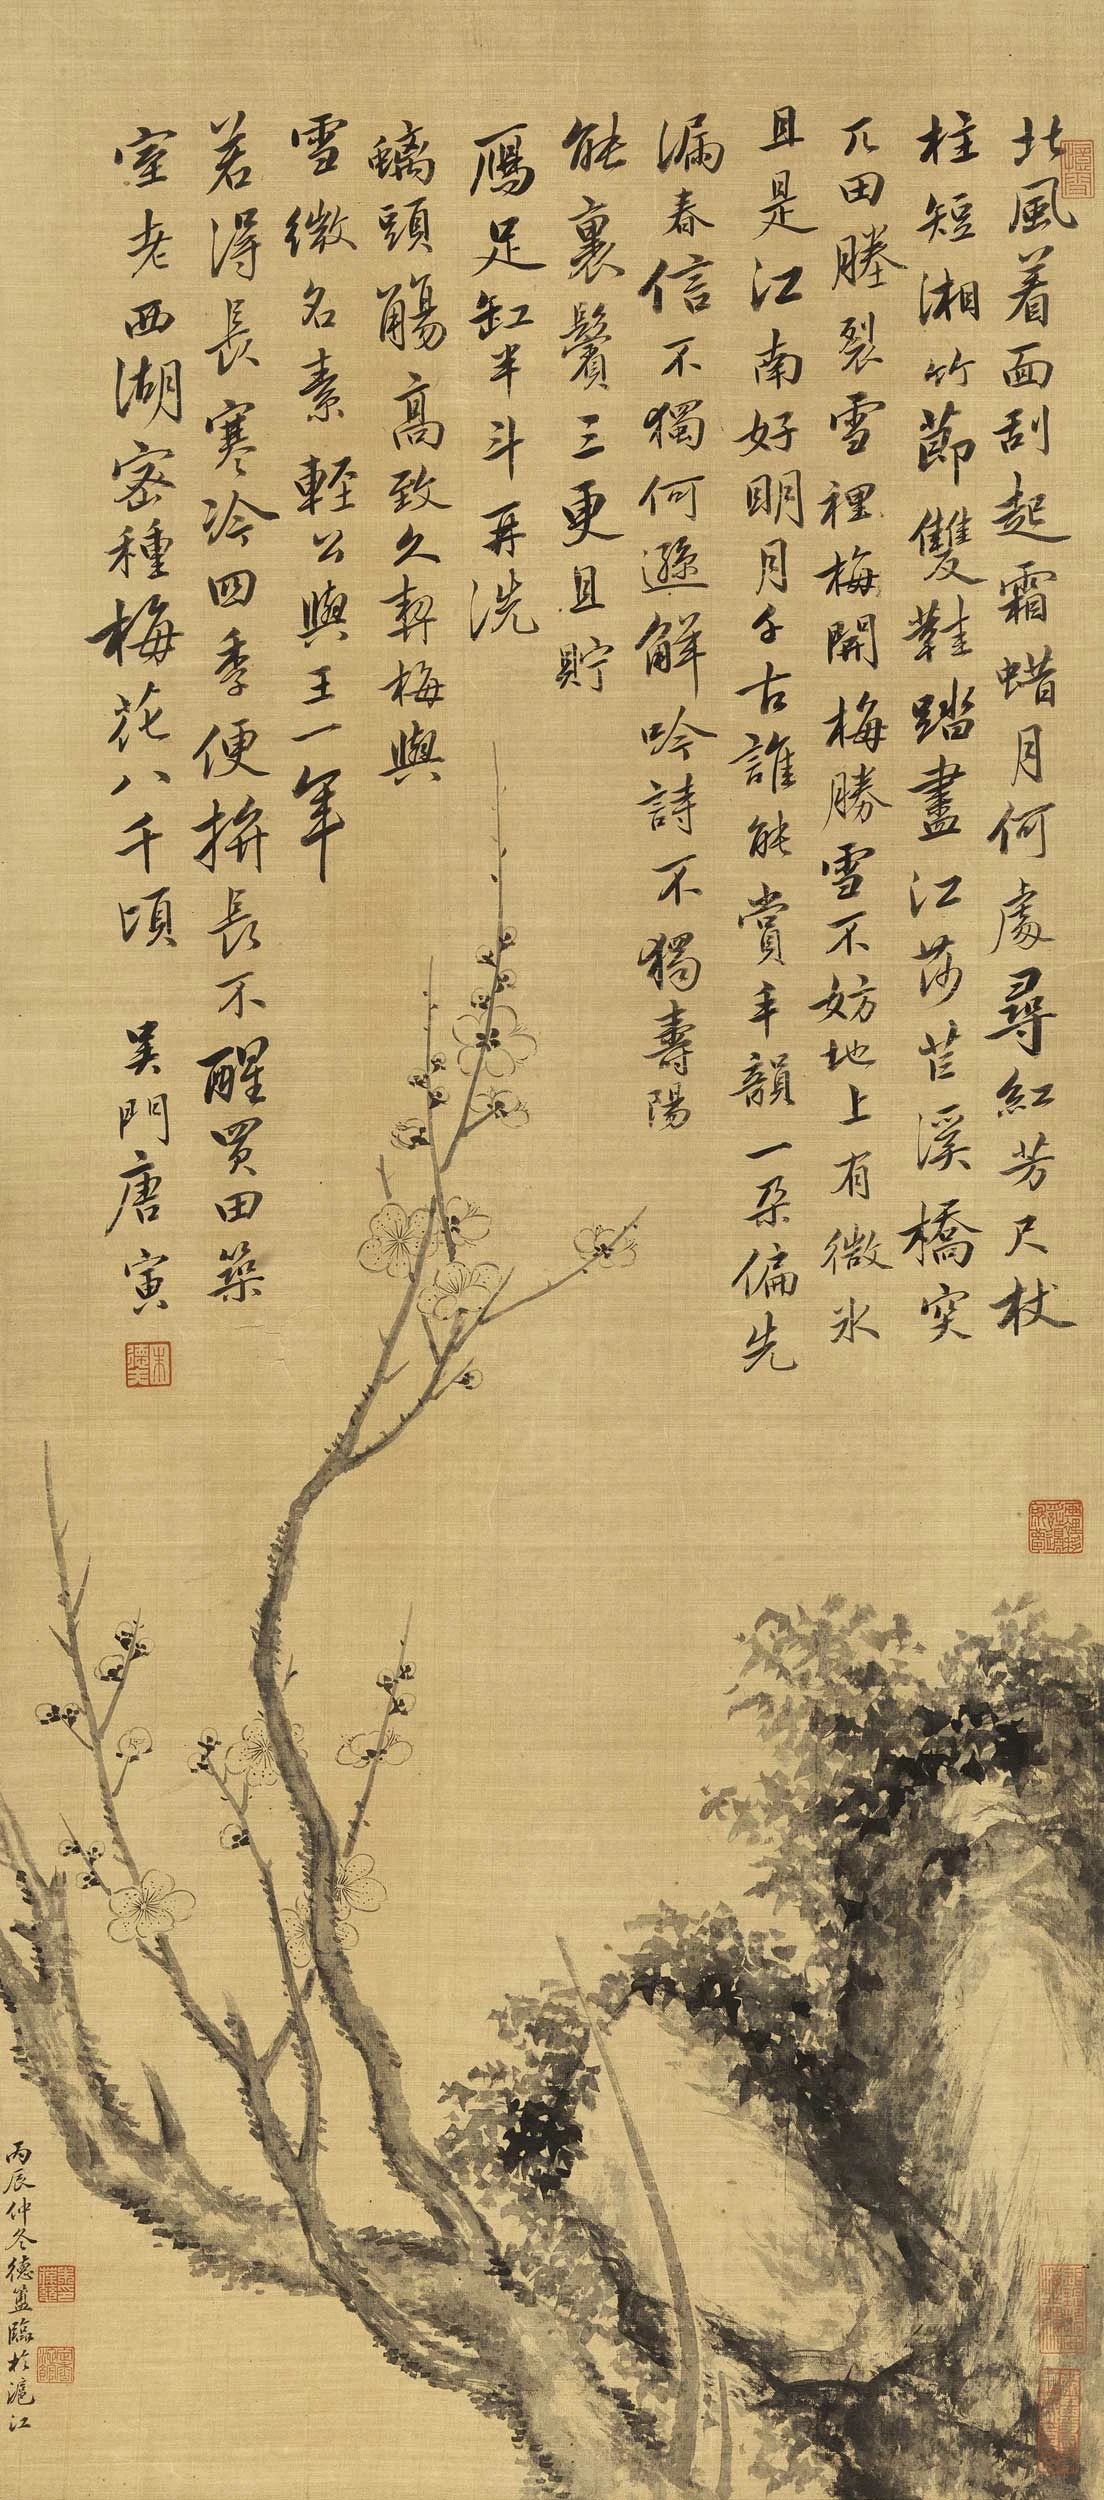 北風着面刮起霜蜡月何處尋紅芳尺杖
柱短湘竹節雙鞋踏盡江莎芒溪橋突
兀田塍裂雪裡梅開梅勝雪不妨地上有微氷
且是江南好明月千古誰能賞丰韻一朵偏先
漏春信不獨何遜解吟詩不獨壽陽
能裹鬢三更且貯
鴈足缸半斗再洗
螭頭觴高致久契梅與
雪微名素輕公與王一年
若得長寒冷四季便拚長不醒買田築
室老西湖密種梅花八千頃
吳門唐寅
丙辰仲冬德盦臨於滬江